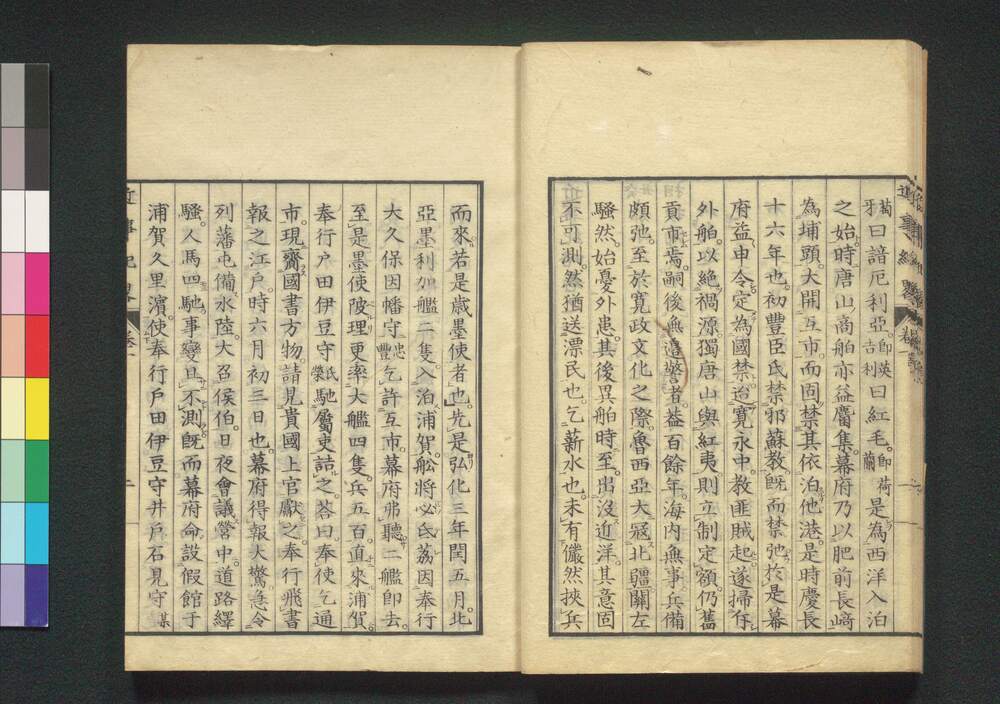 近事紀畧 卷一
萄牙曰諳厄利亞。即英吉利曰紅毛。即荷蘭是為西洋入泊
之始。時唐山商舶亦益麕集。幕府乃以肥前長﨑
為埔頭。大開互市。而固禁其依泊他港。是時慶長
十六年也。初豐臣氏禁邪蘇教。既而禁弛。於是幕
府益申令。定為國禁。迨寬永中。教匪賊起。遂掃斥
外舶。以絶禍源。獨唐山與紅夷。則立制定額。仍舊
貢市焉。嗣後無邊警者。蓋百餘年。海内無事。兵備
頗弛。至於寬政文化之際。魯西亞大冦北疆。關左
騷然。始憂外患。其後異舶時至。出沒近洋。其意固
不可測。然猶送漂民也。乞薪水也。未有儼然挾兵
而來。若是歲墨使者也。先是弘化三年閏五月。北
亞墨利加艦二隻。入泊浦賀。舩將必氐荔因奉行
大久保因幡守忠豐乞許互市。幕府弗聽。二艦即去。
至是墨使陂理更率大艦四隻。兵五百。直來浦賀。
奉行戶田伊豆守氏榮馳屬吏詰之。荅曰。奉使乞通
市。現齎國書方物。請見貴國上官獻之。奉行飛書
報之江戶。時六月初三日也。幕府得報大驚。急令
列藩屯備水陸。大召侯伯。日夜會議營中。道路繹
騷。人馬四馳。事變且不測。既而幕府命設假館于
浦賀久里濱。使奉行戶田伊豆守井戶石見守某
近事紀畧 卷一 二